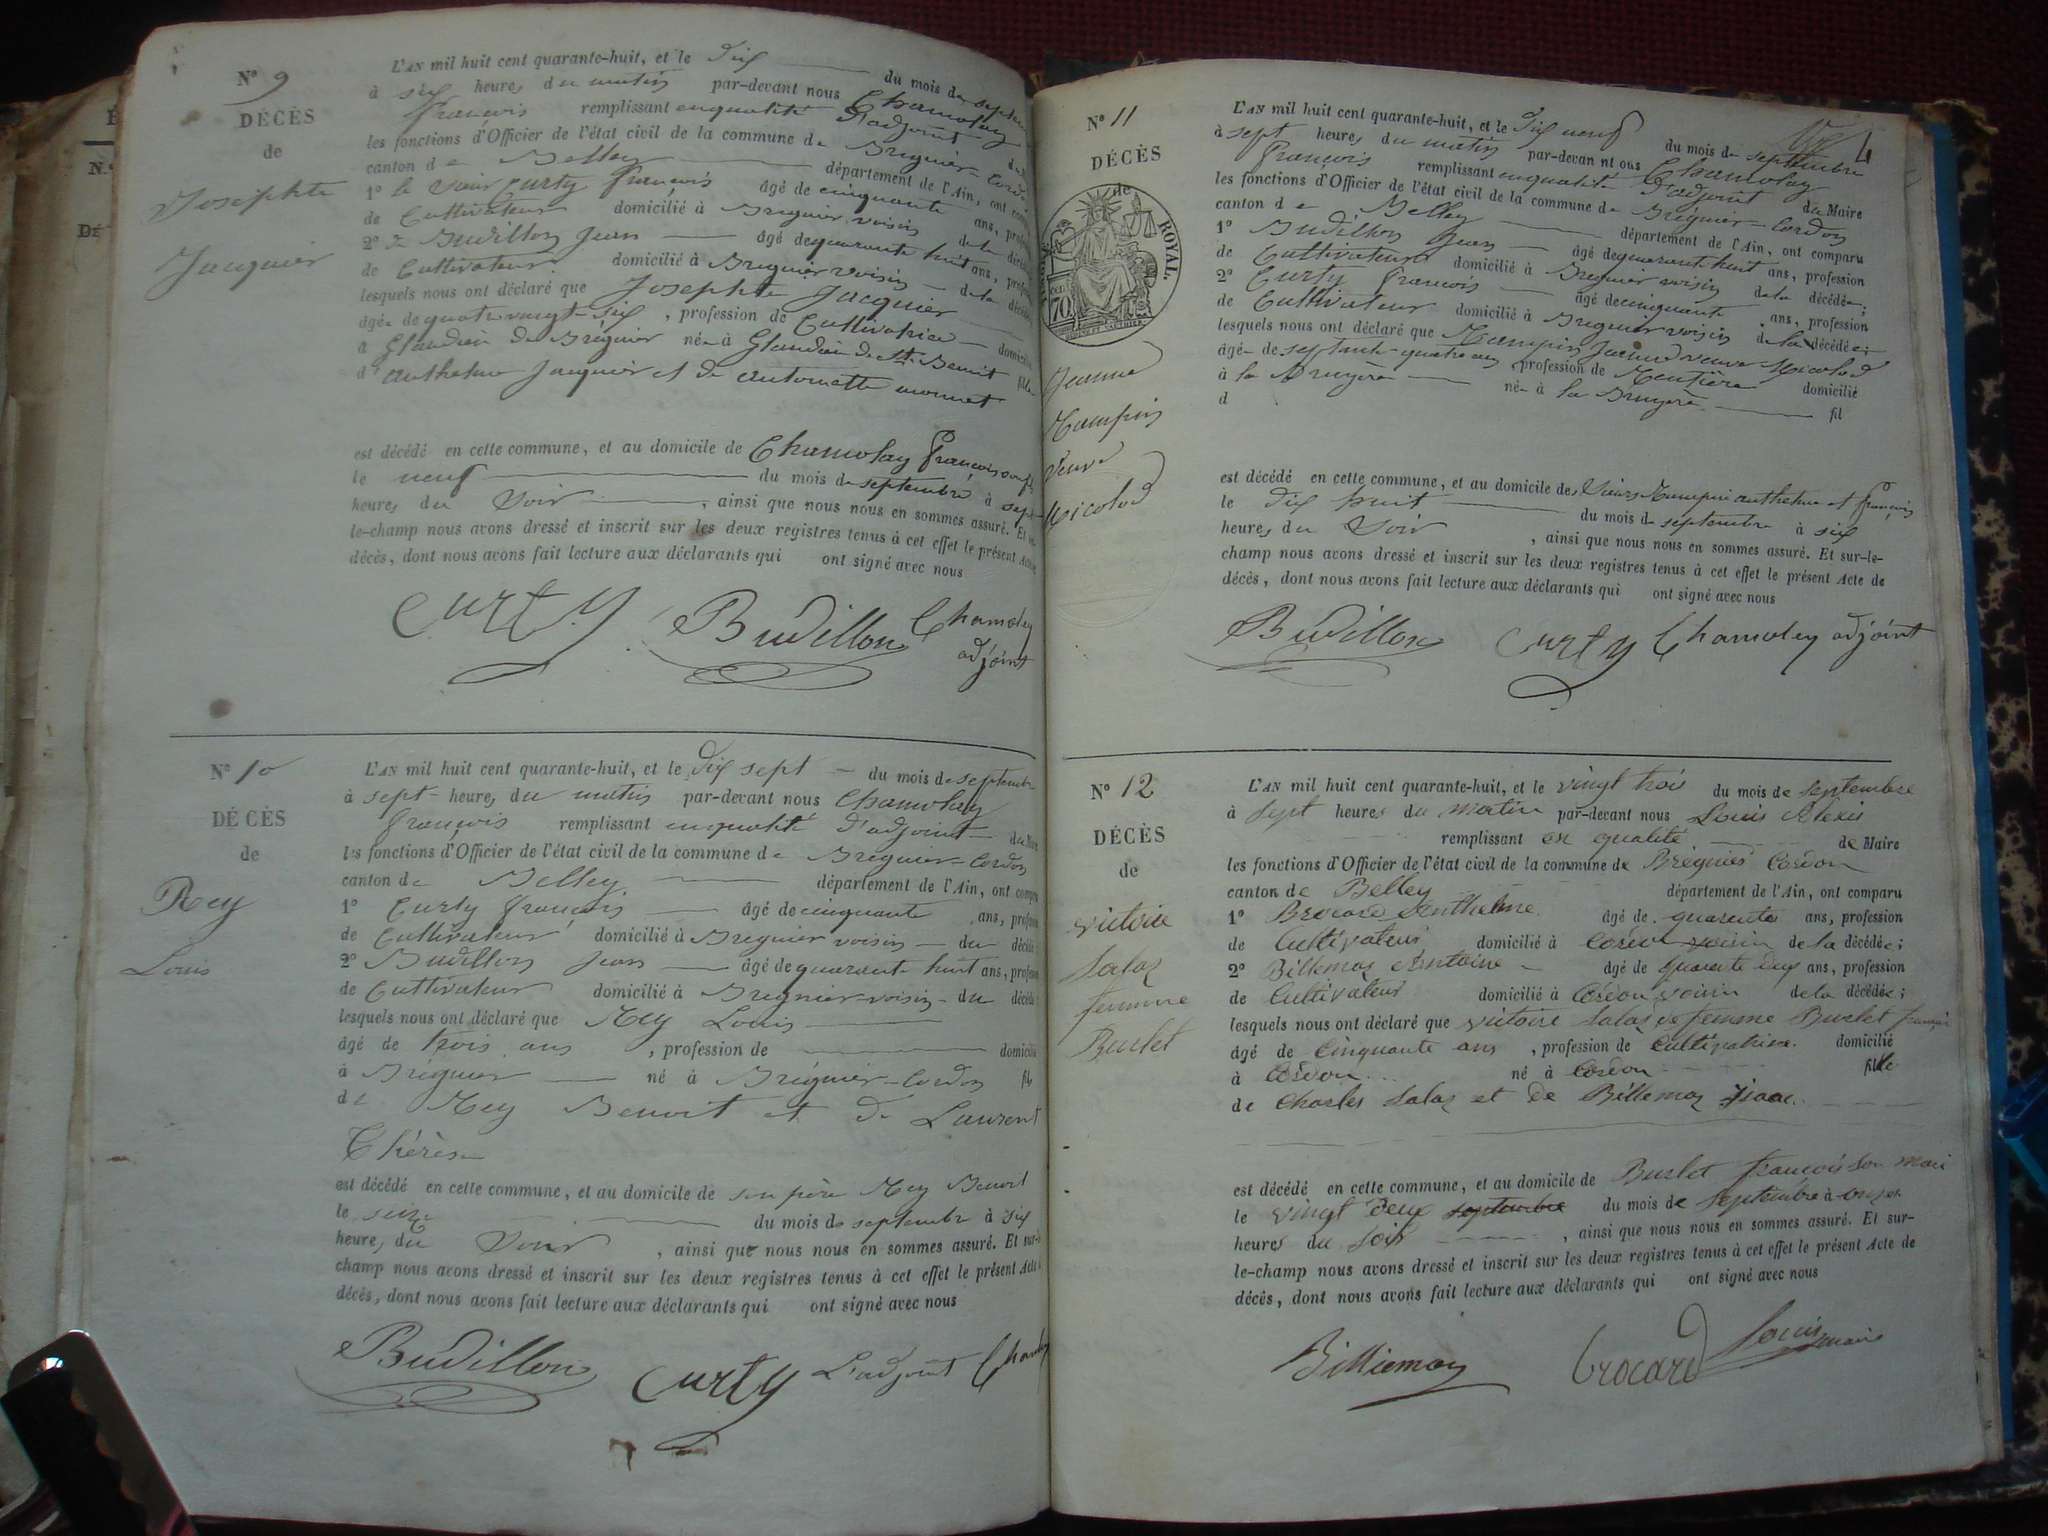 N.º
DÉ
Nº 9
DÉCÈS
de
Josephte
Jacquier
L'AN mil huit cent quarante-huit, et le Dix du mois de septembre
à six heures du matin par-devant nous Chamolay
François remplissant enqualité d'adjoint du
les fonctions d'Officier de l'état civil de la commune de Brégnier-Cordon
canton de Belley département de l'Ain, ont comp
1º le sieur Curty François âgé de cinquante ans, profes
de Cultivateur domicilié à Brégnier voisin de la décéd
2º Budillon Jean âgé de quarante huit ans, profes
de Cultivateur domicilié à Brégnier voisin de la décéd
lesquels nous ont déclaré que Josephte Jacquier
âgée de quatre vingt-six, profession de Cultivatrice domicili
à Glandieu de Brégnier née à Glandieu de St Benoit fille
d'anthelme Jacquier et de antoinette monnet
est décédé en cette commune, et au domicile de Chamolay François
le neuf du mois de septembre à sept
heures du Soir, ainsi que nous nous en sommes assuré. Et sur-
le-champ nous avons dressé et inscrit sur les deux registres tenus à cet effet le présent Acte
décès, dont nous avons fait lecture aux déclarants qui ont signé avec nous
Curty Budillon Chamoley
adjoint
Nº 10
DÉCÈS
de
Rey
Louis
L'AN mil huit cent quarante-huit, et le Dix sept du mois de septembre
à sept heures du matin par-devant nous Chamolay
François remplissant enqualité d'adjoint du Mair
les fonctions d'Officier de l'état civil de la commune de Brégnier-Cordon
canton de Belley département de l'Ain, ont compa
1º Curty François âgé de cinquante ans, profess
de Cultivateur domicilié à Bregnier voisin du décédé
2º Budillon Jean âgé de quarante huit ans, profess
de Cultivateur domicilié à Bregnier voisin du décédé
lesquels nous ont déclaré que Rey Louis
âgé de trois ans, profession de domicilié
à Brégnier né à Brégnier-Cordon fils
de Rey Benoit et de Laurent
Thérèse
est décédé en cette commune, et au domicile de son père Rey Benoit
le seize du mois de septembre à six
heures du Soir, ainsi que nous nous en sommes assuré. Et sur-le
champ nous avons dressé et inscrit sur les deux registres tenus à cet effet le présent Acte
décès, dont nous avons fait lecture aux déclarants qui ont signé avec nous
Budillon Curty L'adjoint Chamoley
Nº 11
DÉCÈS
de
ROYAL.
70
Jeanne
Mampin
Veuve
Nicolod
L'AN mil huit cent quarante-huit, et le Dix neuf du mois de septembre
à sept heures du matin par-devant nous Chamolay
François remplissant enqualité d'adjoint du Maire
les fonctions d'Officier de l'état civil de la commune de Brégnier-Cordon
canton de Belley département de l'Ain, ont comparu
1º Budillon Jean âgé de quarante huit ans, profession
de Cultivateur domicilié à Bregnier voisin de la décédée;
2º Curty François âgé de cinquante ans, profession
de Cultivateur domicilié à Bregnier voisin de la décédée;
lesquels nous ont déclaré que Mampin Jeanne veuve Nicolod
âgée de septante-quatre ans, profession de Rentière domicilié
à la Bruyère née à la Bruyère fil
d
est décédé en cette commune, et au domicile des Sieurs Mampin anthelme et François
le dix huit du mois de septembre à six
heures du Soir, ainsi que nous nous en sommes assuré. Et sur-le-
champ nous avons dressé et inscrit sur les deux registres tenus à cet effet le présent Acte de
décès, dont nous avons fait lecture aux déclarants qui ont signé avec nous
Budillon Curty Chamoley adjoint
Nº 12
DÉCÈS
de
victoire
Salaz
femme
Burlet
L'AN mil huit cent quarante-huit, et le vingt trois du mois de septembre
à sept heures du matin par-devant nous Louis Alexis
remplissant en qualité de Maire
les fonctions d'Officier de l'état civil de la commune de Brégnier Cordon
canton de Belley département de l'Ain, ont comparu
1º Brocard Anthelme âgé de quarente ans, profession
de Cultivateur domicilié à Cordon voisin de la décédée;
2º Billemaz Antoine âgé de quarente deux ans, profession
de Cultivateur domicilié à Cordon voisin de la décédée;
lesquels nous ont déclaré que victoire Salaz femme Burlet françois
âgé de Cinquante ans, profession de Cultivatrice domicilié
à Cordon né à Cordon fille
de Charles Salaz et de Billemaz
est décédé en cette commune, et au domicile de Burlet françois son mari
le vingt deux septembre du mois de septembre à onze
heures du Soir, ainsi que nous nous en sommes assuré. Et sur-
le-champ nous avons dressé et inscrit sur les deux registres tenus à cet effet le présent Acte de
décès, dont nous avons fait lecture aux déclarants qui ont signé avec nous
Billiemaz brocard Louis maire